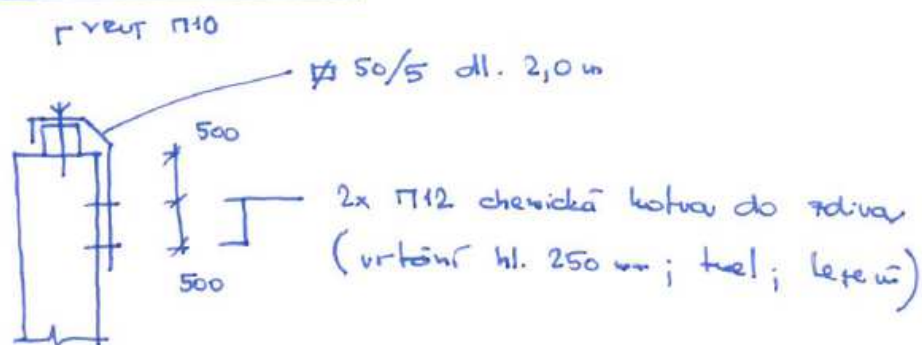 vrut M10
50/5 dl. 2,0 m
500
2x M12 chemická kotva do zdiva
(vrtání hl. 250 mm; tmel; lešení)
500